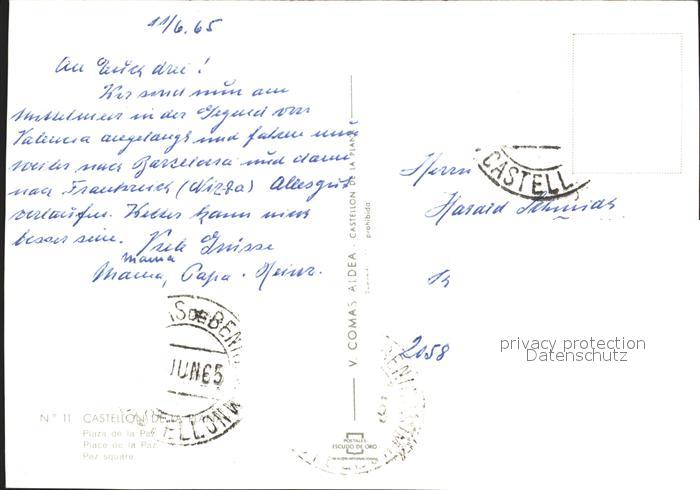 11/6.65
An Euch drei!
Wir sind nun am
Mittelmeer in der Gegend von
Valencia angelangt und fahren nun
weiter nach Barzelona und dann
nach Frankreich (Nizza) Alles gut
verlaufen. Wetter kann nicht
besser sein. Viele Grüsse
Mama
Mama, Papa. Heinz.
V. COMAS ALDEA - CASTELLON DE LA PLANA
prohibida
Herrn
Harald Schmidt
CASTELL
2058
privacy protection
Datenschutz
IS DE BENI
JUN 65
N° 11 CASTELLON DE LA PLANA
Plaza de la Paz
Place de la Paz
Paz square
POSTALES
ESCUDO DE ORO